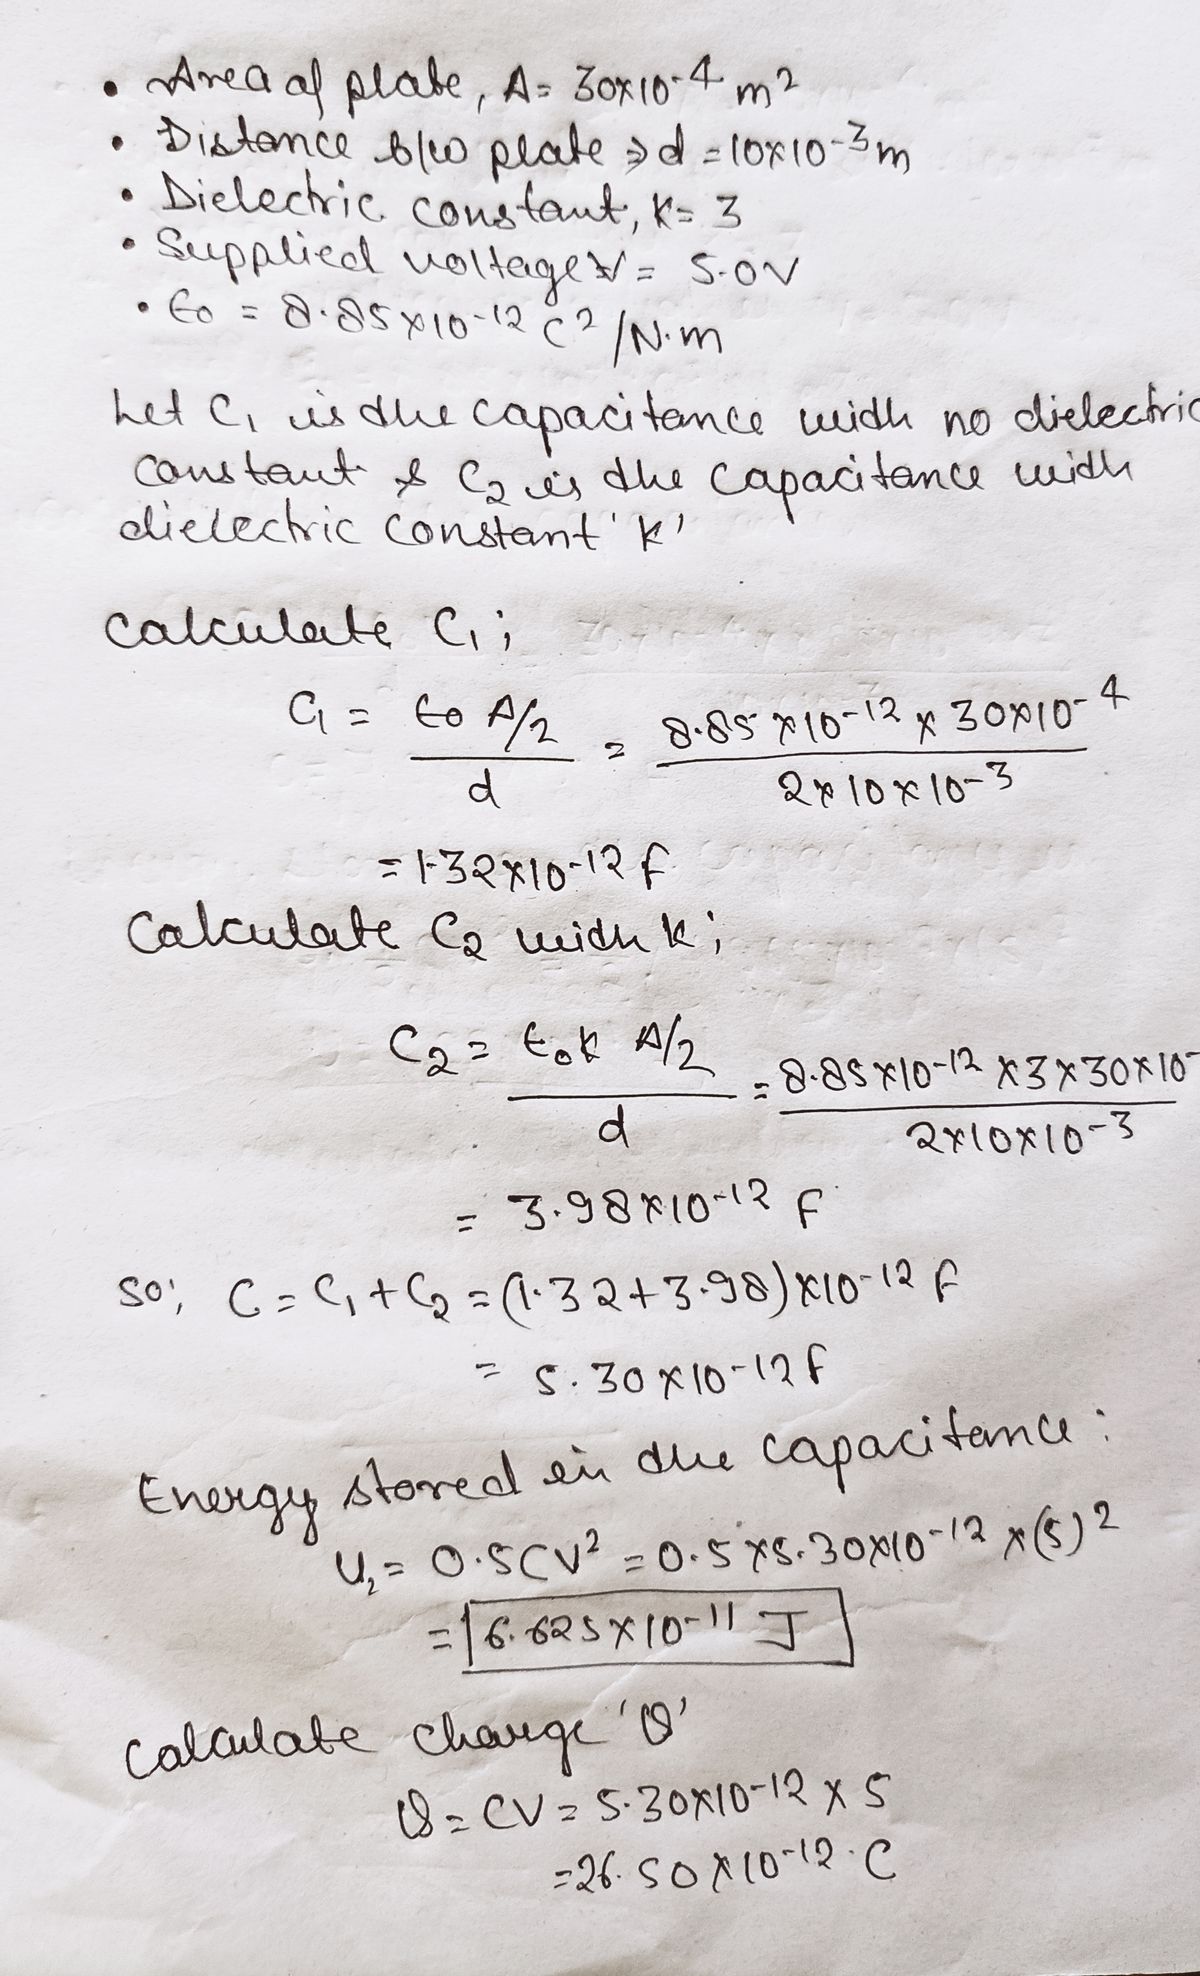 • Area of plate, A = 30×10-4 m2
• Distance b/w plate ⇒ d = 10×10-3 m
• Dielectric constant, K = 3
• Supplied voltage V = 5.0V
• ϵ0 = 8.85×10-12 C2/N.m
Let C1 is the capacitance with no dielectric
constant & C2 is the capacitance with
dielectric constant 'K'
Calculate C1;
C1 = ϵ0 A/2 / d = 8.85×10-12 × 30×10-4 / 2×10×10-3
= 1.32×10-12 F
Calculate C2 with K;
C2 = ϵ0K A/2 / d = 8.85×10-12 ×3×30×10- / 2×10×10-3
= 3.98×10-12 F
So; C = C1 + C2 = (1.32+3.98)×10-12 F
= 5.30×10-12 F
Energy stored in the capacitance:
U2 = 0.5CV2 = 0.5×5.30×10-12 ×(5)2
= 6.625×10-11 J
Calculate charge 'Q'
Q = CV = 5.30×10-12 × 5
= 26.50×10-12 C